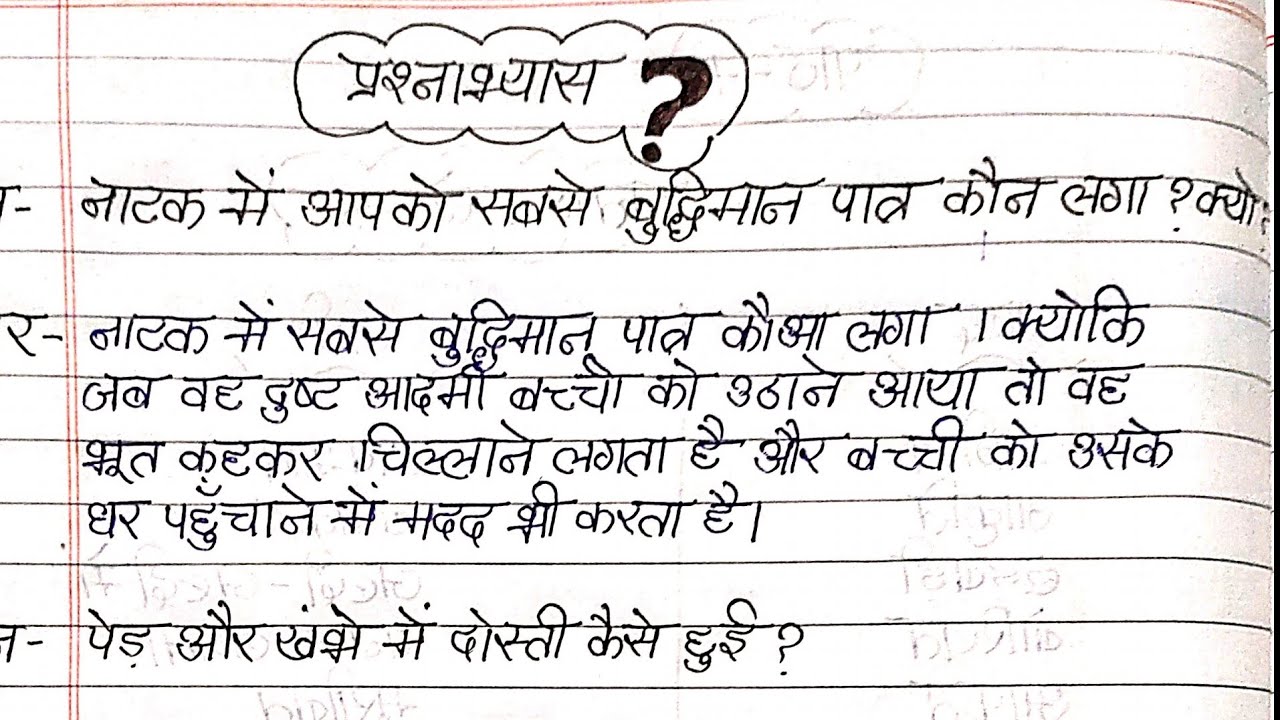 प्रश्नाभ्यास ?
न- नाटक में आपको सबसे बुद्धिमान पात्र कौन लगा ? क्यो
र- नाटक में सबसे बुद्धिमान पात्र कौआ लगा । क्योकि
जब वह दुष्ट आदमी बच्ची को उठाने आया तो वह
भूत कहकर चिल्लाने लगता है और बच्ची को उसके
घर पहुँचाने में मदद भी करता है।
न- पेड़ और खंभे में दोस्ती कैसे हुई ?